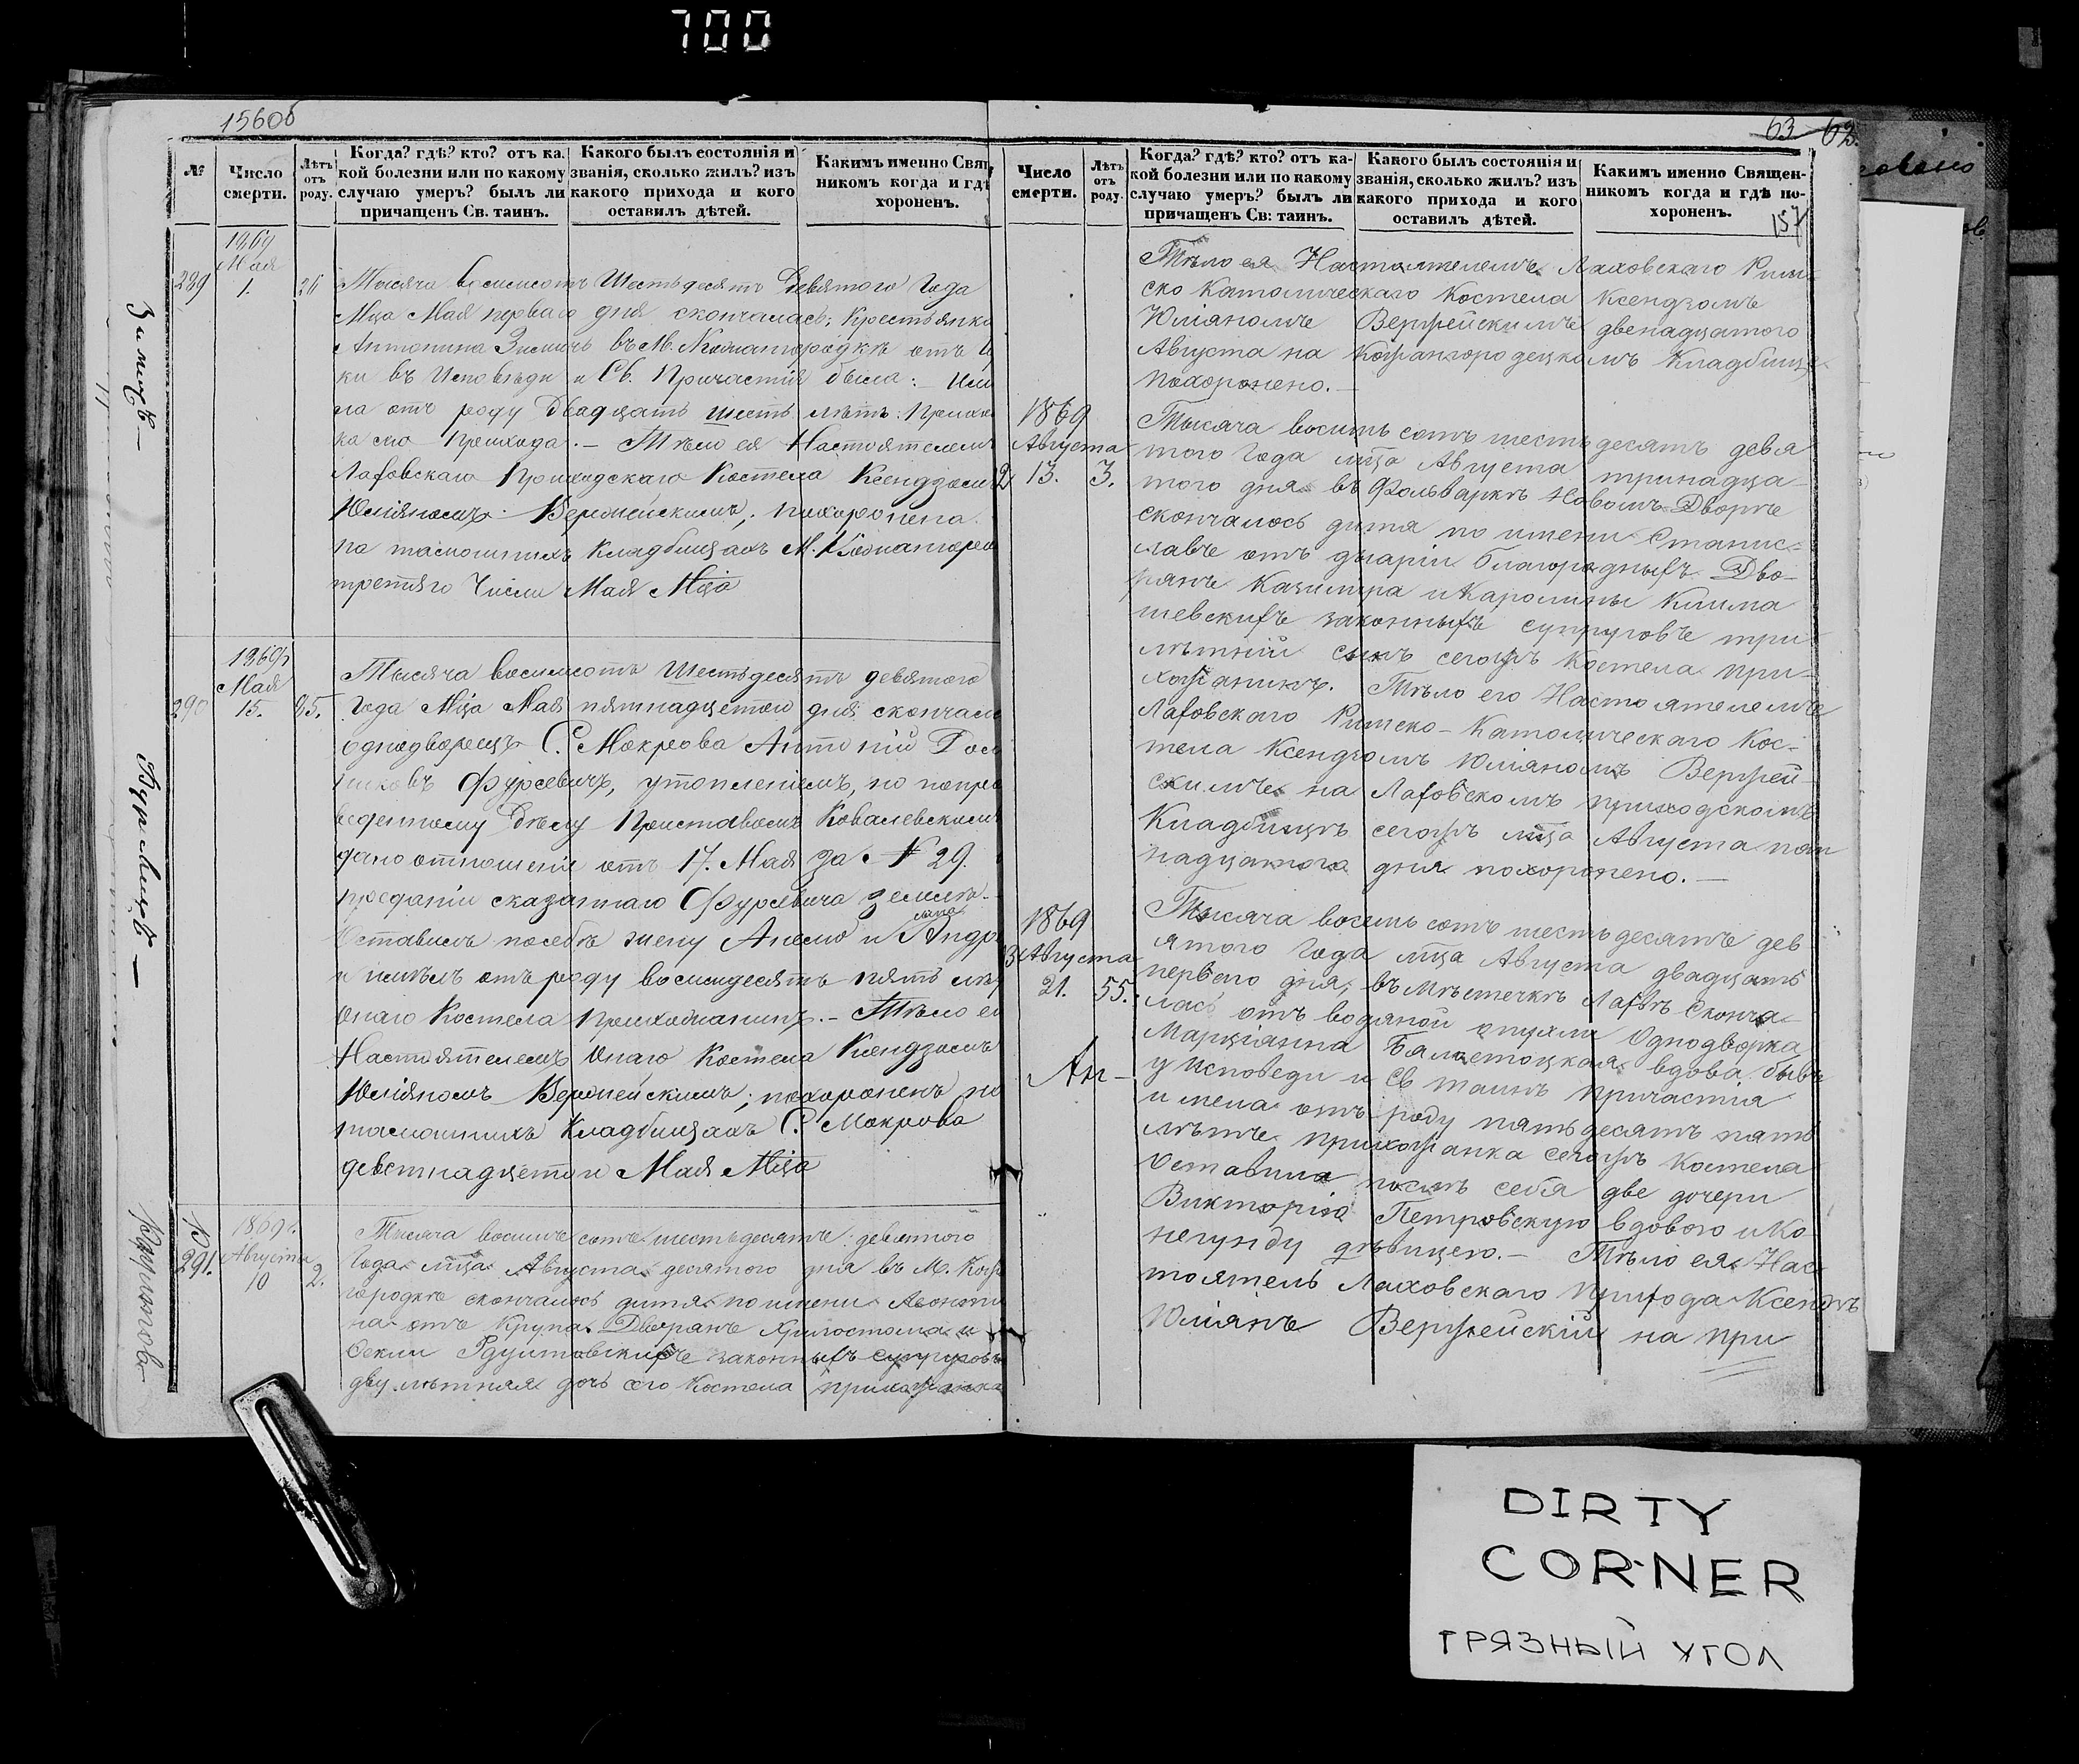 700
156об
63 62.
157
№
Число смерти.
Лѣтъ отъ роду.
Когда? гдѣ? кто? отъ ка-
кой болезни или по какому
случаю умеръ? былъ ли
причащенъ Св. таинъ.
Какого былъ состоянія и
званія, сколько жилъ? изъ
какого прихода и кого
оставилъ дѣтей.
Какимъ именно Свящ
никомъ когда и гдѣ
хороненъ.
1869
Мая
289 1. 26
Тысяча восимсотъ Шестьдесятъ Девятого Года
Мца Мая перваго дня скончалась, Крестьянка
Антонина Зимичь въ М. Кожангородкѣ отъ
ки въ Исповѣди и Св. Причастія была: Име
ла отъ роду Двадцать шесть лѣтъ: Прихо
ка сего Прихода. — Тѣло ея Настоятелемъ
Лаховскаго Приходскаго Костела Ксендзомъ
Юліяномъ Вержейскимъ, похоронена
на тамошнихъ Кладбищахъ М. Кожангород
третяго Числа Мая Мца
1869
Мая
290 15. 85.
Тысяча восимсотъ Шестьдесятъ девятого
Года Мца Мая пятнадцетои дня скончал
однодворецъ С. Мокрова Антоній
Фурсевичъ, утопленіемъ, по попро
веденному Дѣлу Приставомъ Ковалевскимъ
дано отношеніе отъ 17. Мая за № 29.
преданіи сказаннаго Фурсевича землѣ. —
Оставилъ посебѣ жену Анелю и Андр
и имѣлъ отъ роду восимдесятъ пять лѣт
онаго Костела Прихожанинъ. — Тѣло е
Настоятелемъ Онаго Костела Ксендзомъ
Юліяномъ Вержейскимъ; похороненъ на
тамошнихъ Кладбищахъ С. Мокрова
деветнадцетои Мая Мца
1869 г.
Августа
291. 10 2.
Тысяча восимь сотъ шестьдесятъ девятого
Года мца Августа десятого дня въ М. Кож
городкѣ скончалось дитя по имени Леонти
на отъ Крупа Дворянъ Хризостома и
законныхъ супруговъ
двулѣтняя дочь сего Костела прихожанка
Число смерти.
Лѣтъ отъ роду.
Когда? гдѣ? кто? отъ ка-
кой болезни или по какому
случаю умеръ? былъ ли
причащенъ Св: таинъ.
Какого былъ состоянія и
званія, сколько жилъ? изъ
какого прихода и кого
оставилъ дѣтей.
Какимъ именно Священ-
никомъ когда и гдѣ по-
хороненъ.
Тѣло ея Настоятелемъ Лаховскаго Рим
ско Католическаго Костела Ксендзомъ
Юліяномъ Вержейскимъ двенадцатого
Августа на Кожангородецкомъ Кладбищѣ
похоронено. —
1869
Августа
2 13. 3.
Тысяча восимь сотъ шестьдесятъ девя
того Года мца Августа тринадца-
того дня въ Фольваркѣ Новомъ-Дворѣ
скончалось дитя по имени Станис-
лавъ отъ діаріи благородныхъ Дво-
рянъ Казимира и Каролины Клима
шевскихъ законныхъ супруговъ три
лѣтній сынъ сегожъ Костела при-
хожанинъ. Тѣло его Настоятелемъ
Лаховскаго Римско-Католическаго Кос-
тела Ксендзомъ Юліяномъ Вержей-
скимъ на Лаховскомъ приходскомъ
Кладбищѣ сегожъ мца Августа пят
надцатого дня похоронено. —
1869
3 Августа
21. 55.
Тысяча восимь сотъ шестьдесятъ дев
ятого Года мца Августа двадцать
первого дня, въ Мѣстечкѣ Лахвѣ Сконча-
лась отъ водяной опухли Однодворка
Марціянна Бялостоцкая вдова бывъ
у исповеди и Св таинъ причастія
имела отъ роду пятьдесятъ пять
лѣтъ прихожанка сегожъ Костела
Оставила послѣ себя две дочери
Викторію Петровскую вдовою и Ко
негунду дѣвицею. — Тѣло ея Нас
тоятель Лаховскаго прихода Ксендзъ
Юліянъ Вержейскій на при
DIRTY
CORNER
ГРЯЗНЫЙ УГОЛ